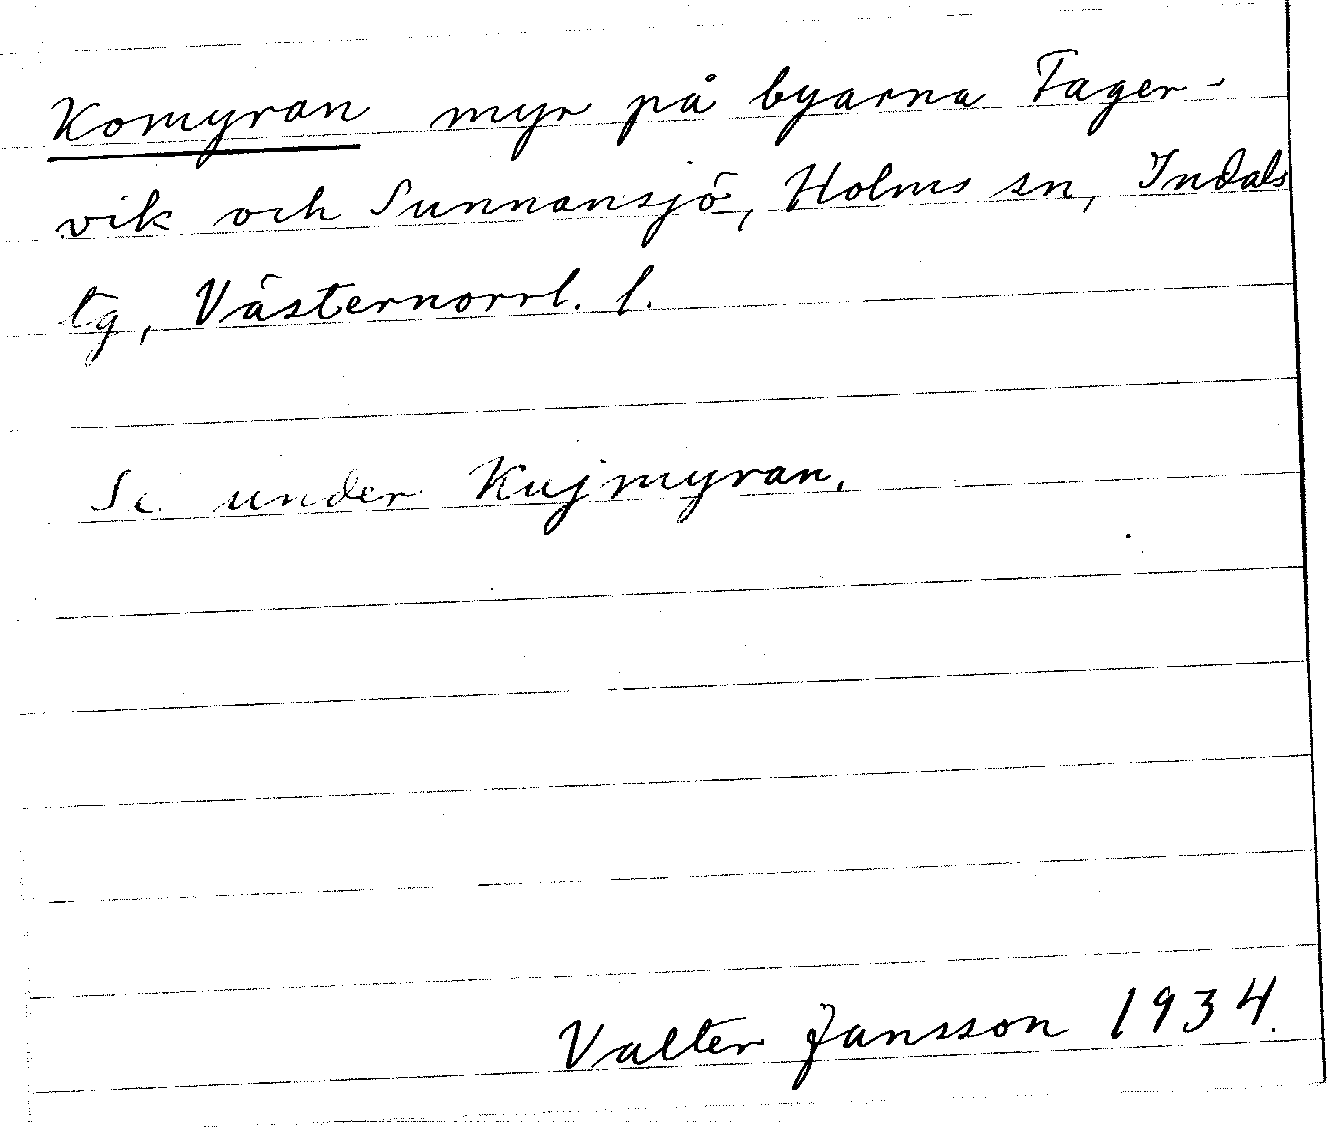 Komyran myr på byarna Tager-
vik och Sunnansjö, Holms sn, Indals
tg, Västernorrl. l.
Se under Kujmyran.
Valter Jansson 1934.